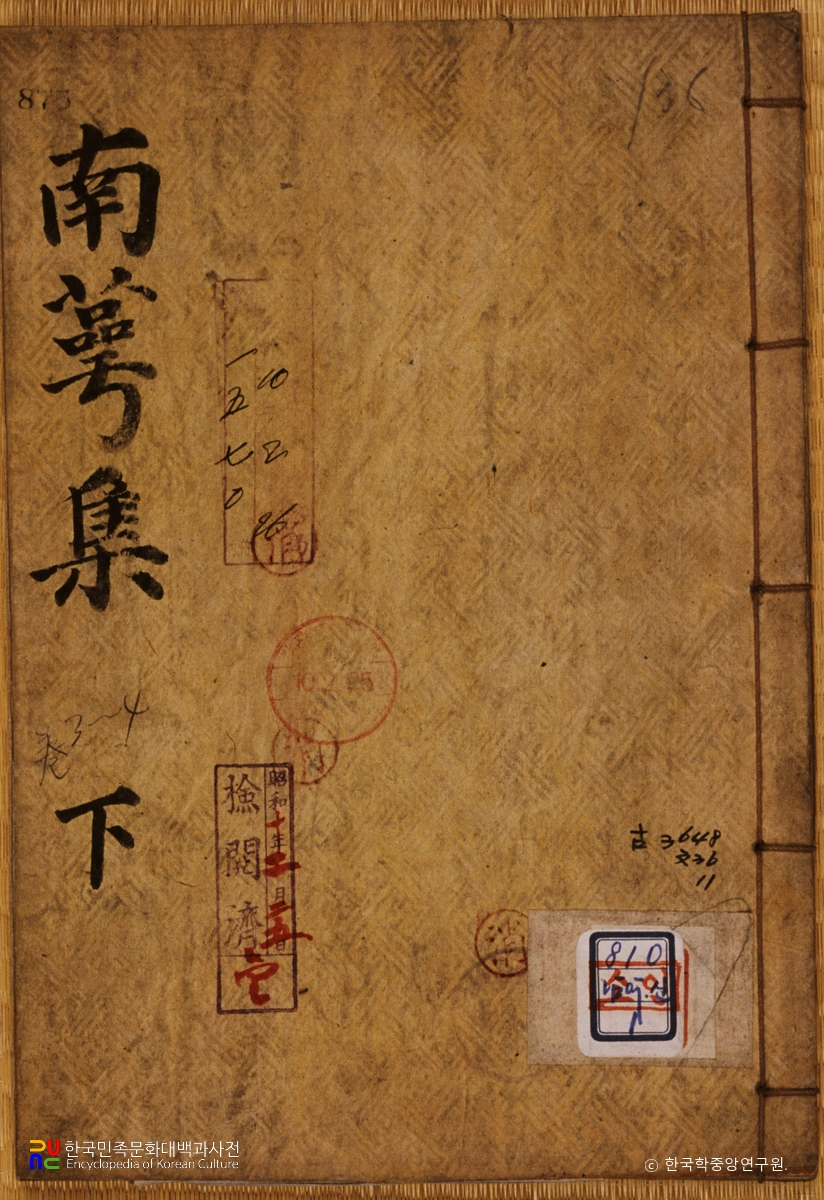 南蕚集
下
卷3~4
136
一五七〇
10 2 26
昭和十年二月五日
検閲濟
古 3648
文36
11
810
1
한국민족문화대백과사전
Encyclopedia of Korean Culture
© 한국학중앙연구원.